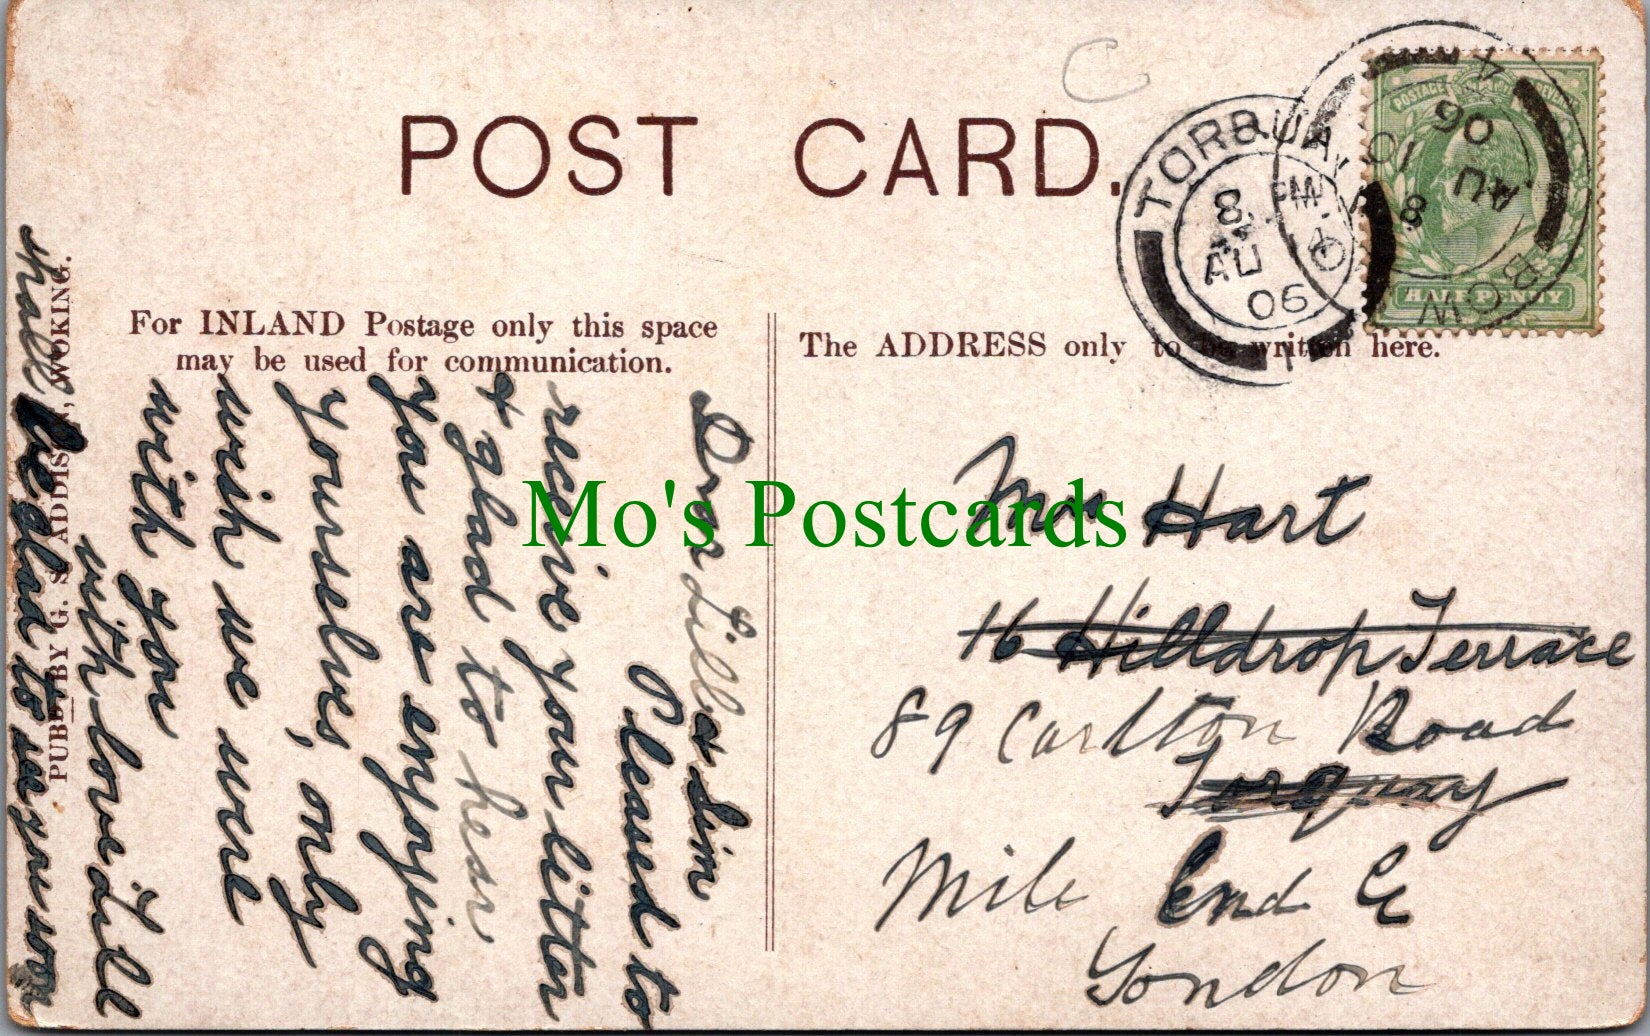 POST CARD.
For INLAND Postage only this space
may be used for communication.
The ADDRESS only to be written here.
TORQUAY
8 PM
AU
06
BOW
AU 10
06
POSTAGE
HALFPENNY
Mo's Postcards
Dear Lill & Jim
Pleased to
receive your letter
& glad to hear
you are enjoying
yourselves, only
wish we were
with you
with love Lill
shall be glad to see you soon
Hart
16 Hilldrop Terrace
89 Carlton Road
Torquay
Mile End E
London
PUBD. BY G. S. ADDIS, WOKING.